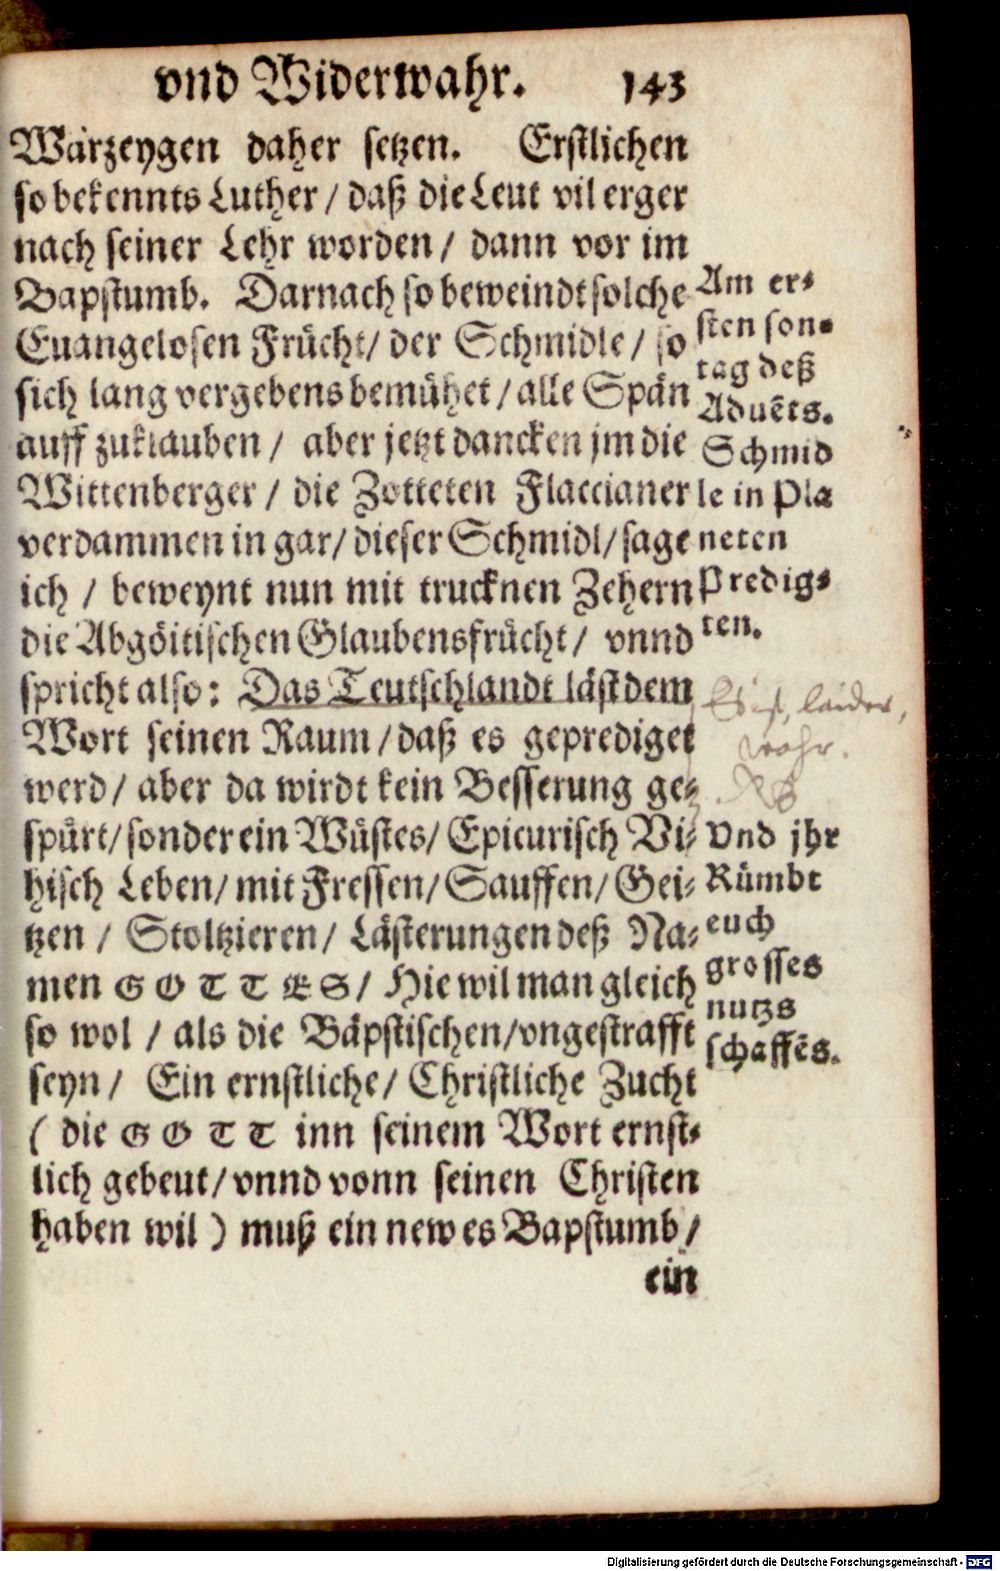 vnd Widerwahr. 143
Warzeygen daher setzen. Erstlichen
so bekennts Luther / daß die Leut vil erger
nach seiner Lehr worden / dann vor im
Bapstumb. Darnach so beweindt solche
Euangelosen Frücht / der Schmidle / so
sich lang vergebens bemühet / alle Spän
auff zuklauben / aber jetzt dancken jm die
Wittenberger / die Zotteten Flaccianer
verdammen in gar / dieser Schmidl / sage
ich / beweynt nun mit trucknen Zehern
die Abgöttischen Glaubensfrücht / vnnd
spricht also: Das Teutschlandt läst dem
Wort seinen Raum / daß es geprediget
werd / aber da wirdt kein Besserung ge-
spürt / sonder ein Wüstes / Epicurisch Vi-
hisch Leben / mit Fressen / Sauffen / Gei-
tzen / Stoltzieren / Lästerungen deß Na-
men GOTTES / Hie wil man gleich
so wol / als die Bäpstischen / vngestrafft
seyn / Ein ernstliche / Christliche Zucht
( die GOTT inn seinem Wort ernst-
lich gebeut / vnnd vonn seinen Christen
haben wil ) muß ein newes Bapstumb /
ein
Am er-
sten son-
tag deß
Aduẽts.
Schmid
le in Pla
neten
Predig-
ten.
Es ist, laider,
wahr.
Vnd jhr
Rümbt
euch
grosses
nutzs
schaffẽs.
Digitalisierung gefördert durch die Deutsche Forschungsgemeinschaft - DFG